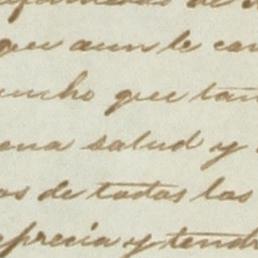 que aun le can
ucho que tan
ena salud y
os de todas las
aprecia y tendr